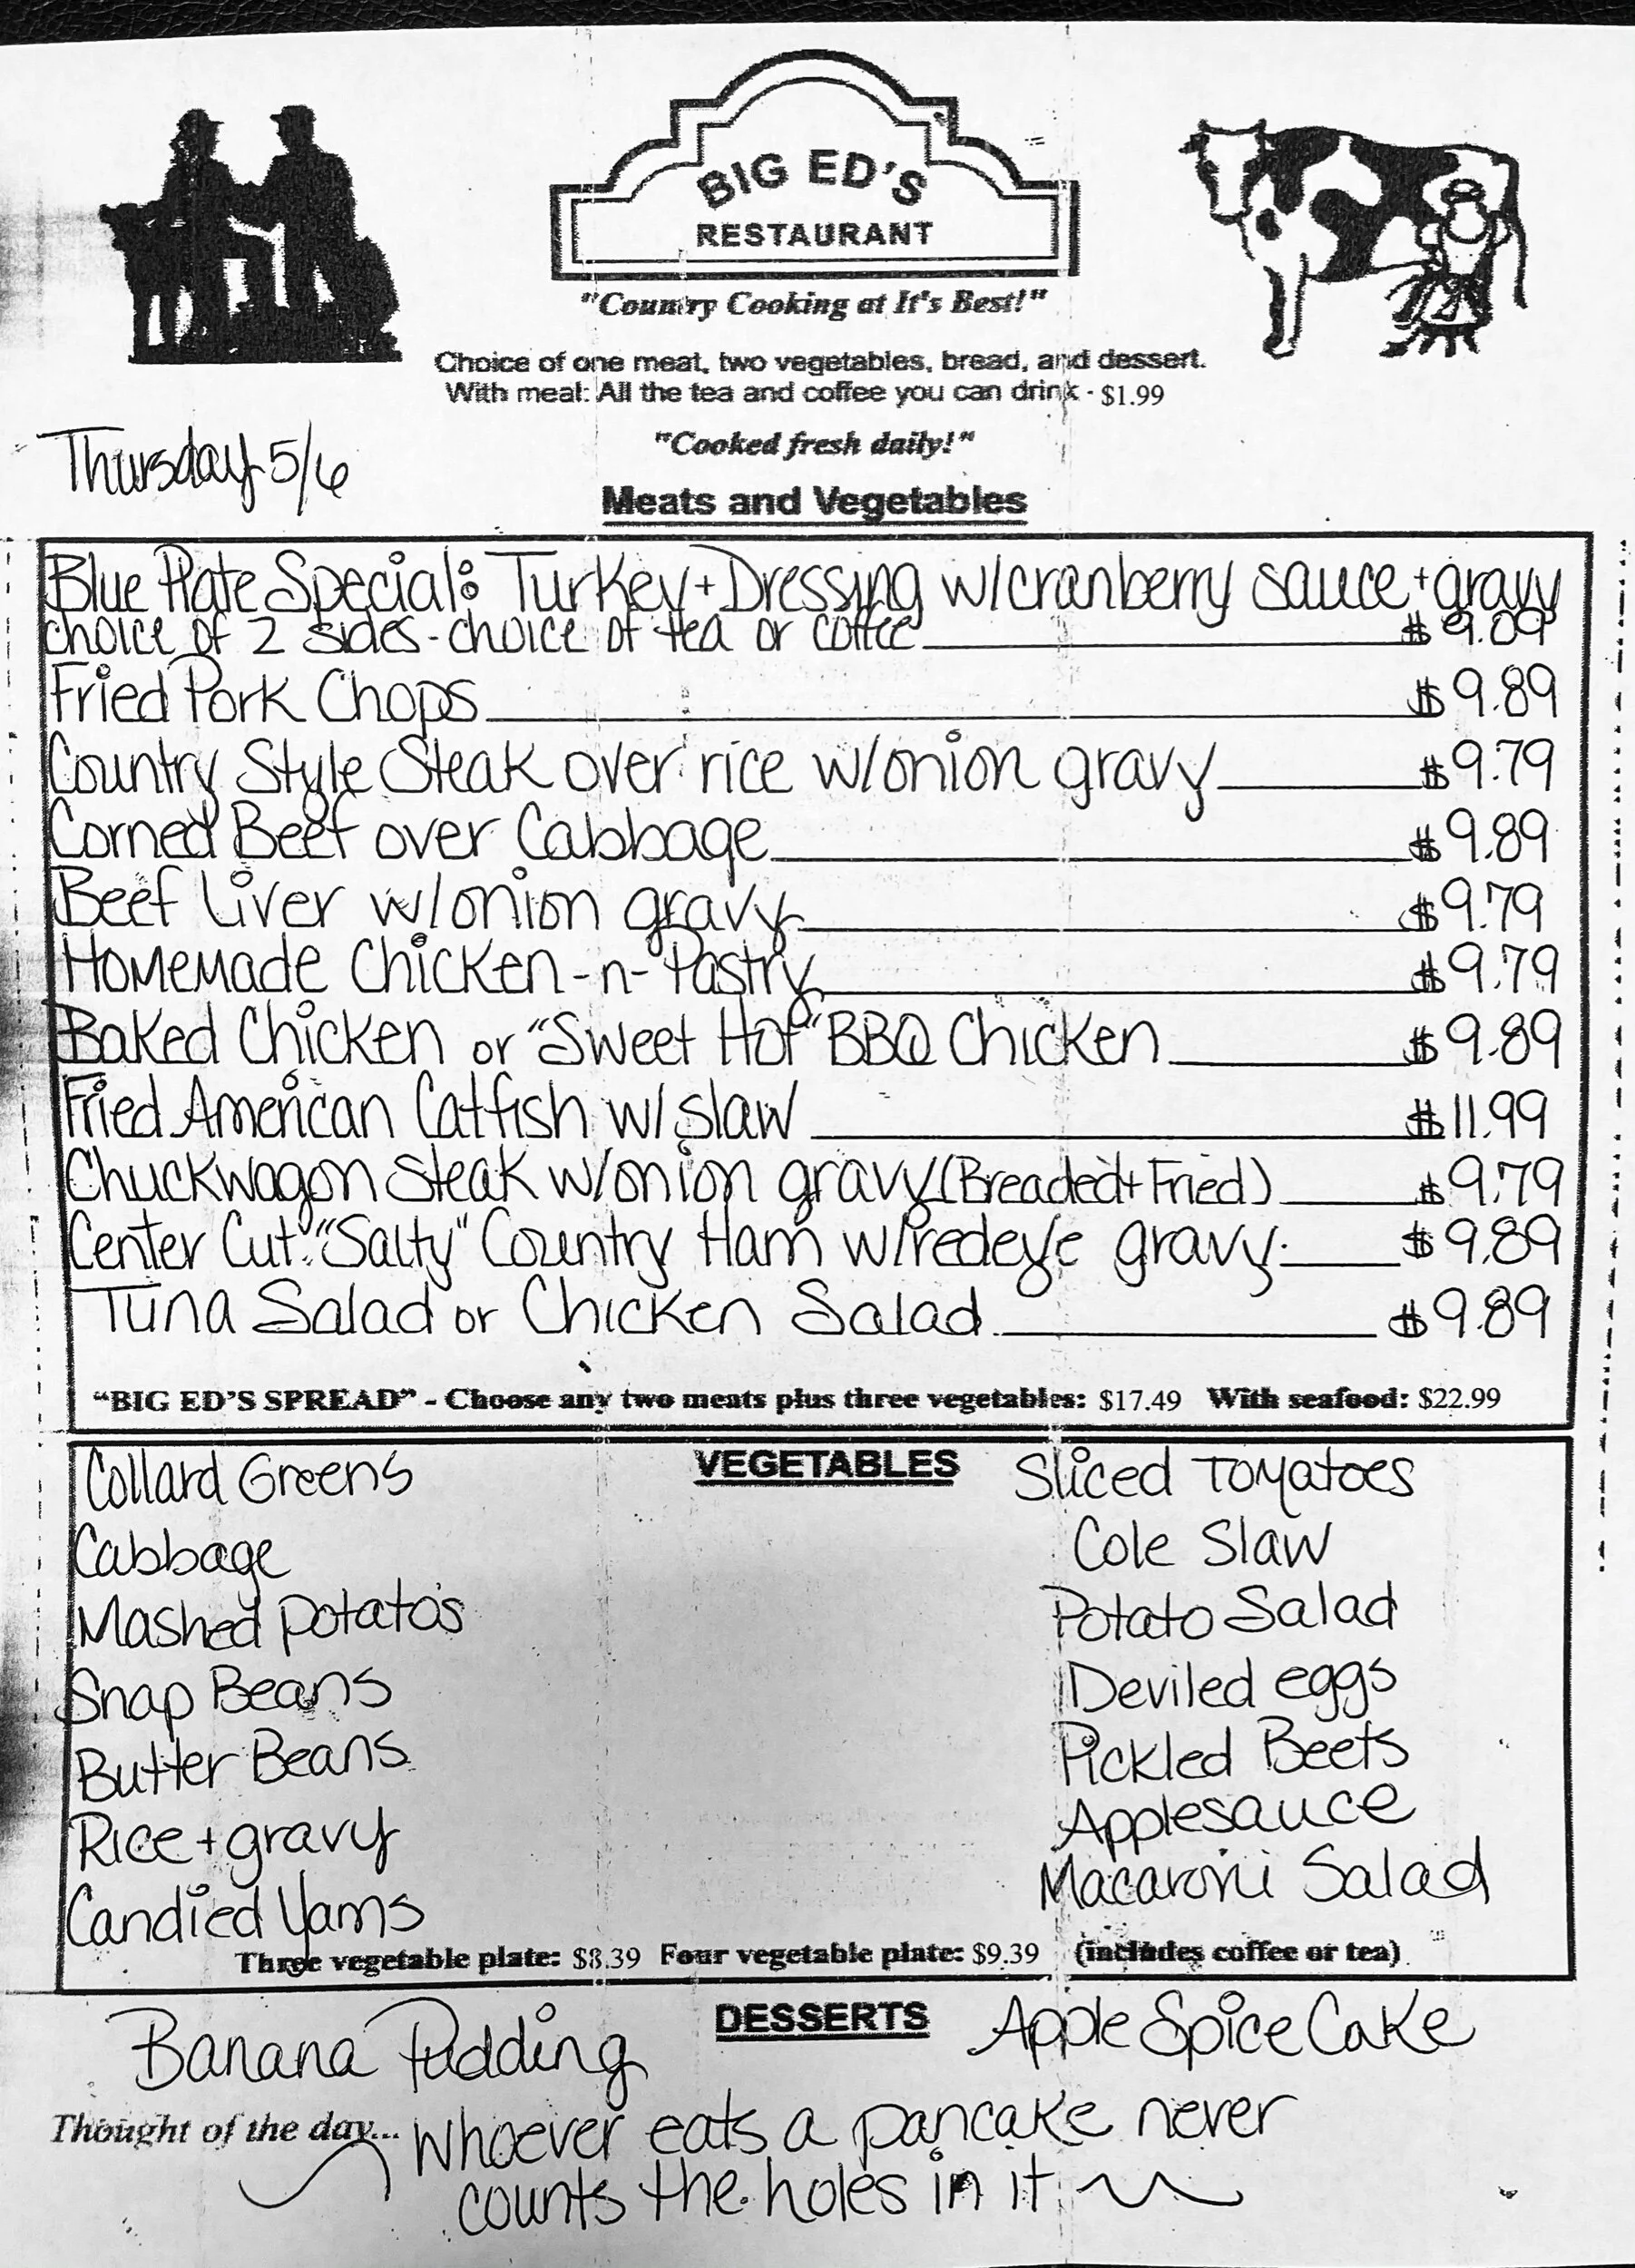 BIG ED'S
RESTAURANT
"Country Cooking at It's Best!"
Choice of one meat, two vegetables, bread, and dessert.
With meal: All the tea and coffee you can drink - $1.99
"Cooked fresh daily!"
Thursday 5/6
Meats and Vegetables
Blue Plate Special: Turkey + Dressing w/cranberry sauce + gravy
choice of 2 sides - choice of tea or coffee $ 9.09
Fried Pork Chops $ 9.89
Country Style Steak over rice w/onion gravy $ 9.79
Corned Beef over Cabbage $ 9.89
Beef Liver w/onion gravy $ 9.79
Homemade Chicken-n-Pastry $ 9.79
Baked Chicken or "Sweet Hot" BBQ Chicken $ 9.89
Fried American Catfish w/ slaw $ 11.99
Chuckwagon Steak w/onion gravy (Breaded + Fried) $ 9.79
Center Cut "Salty" Country Ham w/redeye gravy $ 9.89
Tuna Salad or Chicken Salad $ 9.89
"BIG ED'S SPREAD" - Choose any two meats plus three vegetables: $17.49 With seafood: $22.99
VEGETABLES
Collard Greens
Cabbage
Mashed Potato's
Snap Beans
Butter Beans
Rice + gravy
Candied Yams
Sliced Tomatoes
Cole Slaw
Potato Salad
Deviled eggs
Pickled Beets
Applesauce
Macaroni Salad
Three vegetable plate: $8.39 Four vegetable plate: $9.39 (includes coffee or tea)
DESSERTS
Banana Pudding
Apple Spice Cake
Thought of the day... Whoever eats a pancake never
counts the holes in it